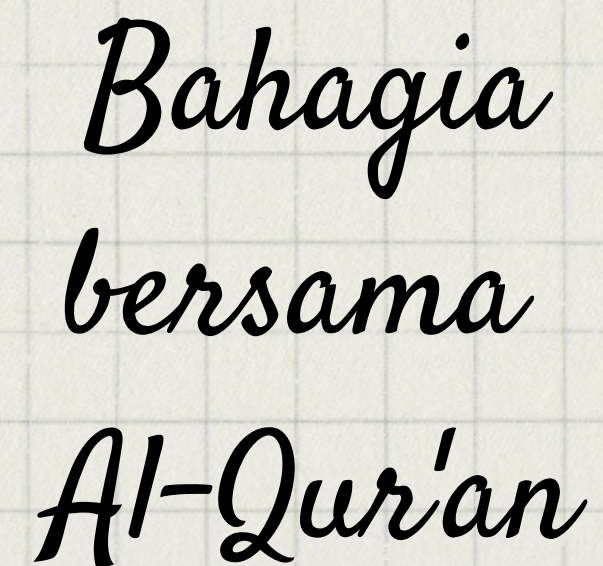 Bahagia
bersama
Al-Qur'an